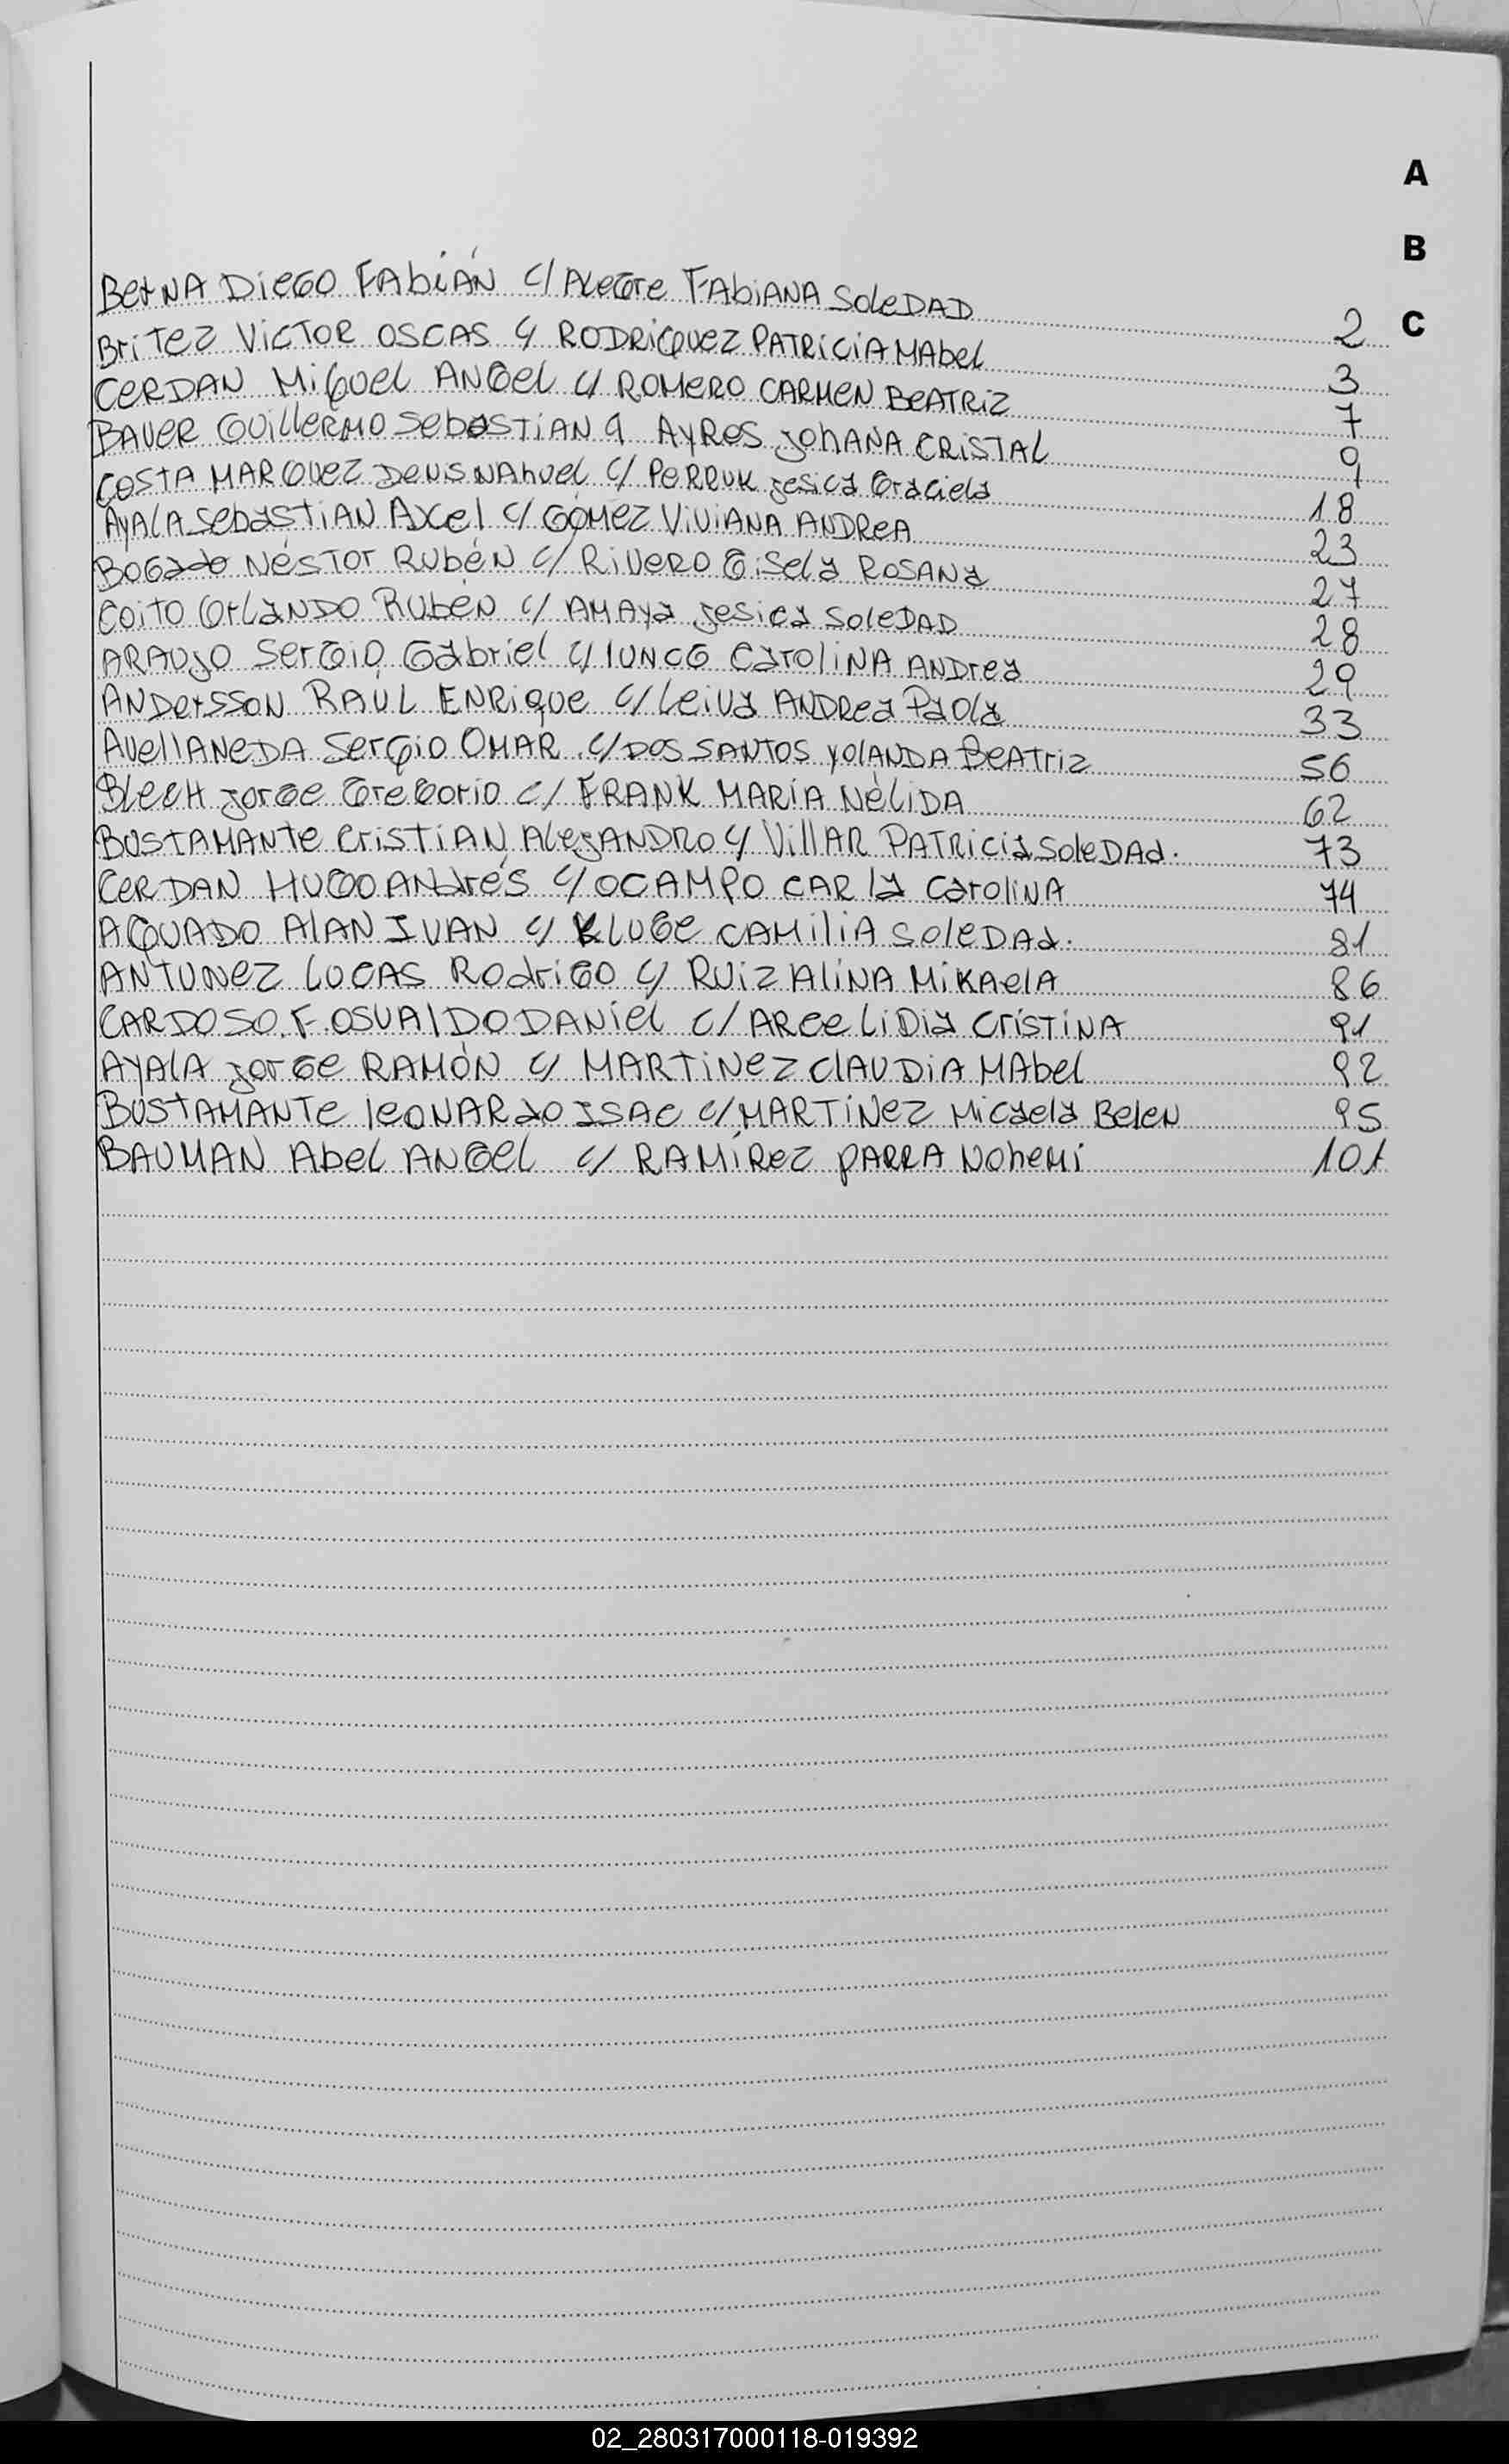 A
B
C
BerNA Diego Fabián c/ Alegre Fabiana Soledad 2
Britez Victor Oscas c/ Rodriquez Patricia Mabel 3
Cerdan Miguel Angel c/ Romero Carmen Beatriz 7
Bauer Guillermo Sebastian c/ Ayres Johana Cristal 9
Costa Marquez Denis Nahuel c/ Perruk Jesica Graciela 18
Ayala Sebastian Axel c/ Gómez Viviana Andrea 23
Bogado Néstor Rubén c/ Rivero Gisela Rosana 27
Coito Orlando Ruben c/ Amaya Jesica Soledad 28
Araujo Sergio Gabriel c/ Iunco Carolina Andrea 29
Andersson Raúl Enrique c/ Leiva Andrea Paola 33
Avellaneda Sergio Omar c/ Dos Santos Yolanda Beatriz 56
Blech Jorge Gregorio c/ Frank María Nélida 62
Bustamante Cristian Alejandro c/ Villar Patricia Soledad. 73
Cerdan Hugo Andrés c/ Ocampo Carla Carolina 74
Aquado Alan Ivan c/ Kluge Camilia Soledad. 81
Antunez Lucas Rodrigo c/ Ruiz Alina Mikaela 86
Cardoso F. Osvaldo Daniel c/ Arce Lidia Cristina 91
Ayala Jorge Ramón c/ Martinez Claudia Mabel 92
Bustamante Leonardo Isac c/ Martínez Micaela Belen 95
Bauman Abel Angel c/ Ramírez Parra Nohemi 101
02_280317000118-019392